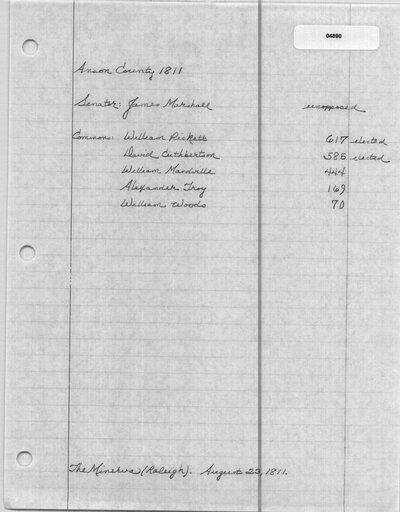 04890
Anson County 1811
Senator: James Marshall unopposed
Commons: William Pickett 617 elected
David Cuthbertson 585 elected
William Mandville 444
Alexander Troy 169
William Woods 70
The Minerva (Raleigh). August 23, 1811.